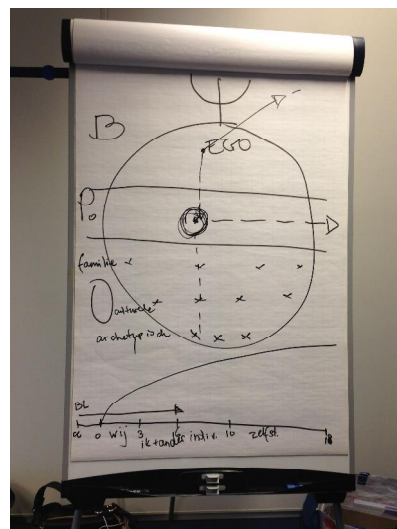 B
EGO
P.O
familie
O
culturele
archetypisch
BL
∝ 0 wij 3 ik+ander indiv. 10 zelfst. 18